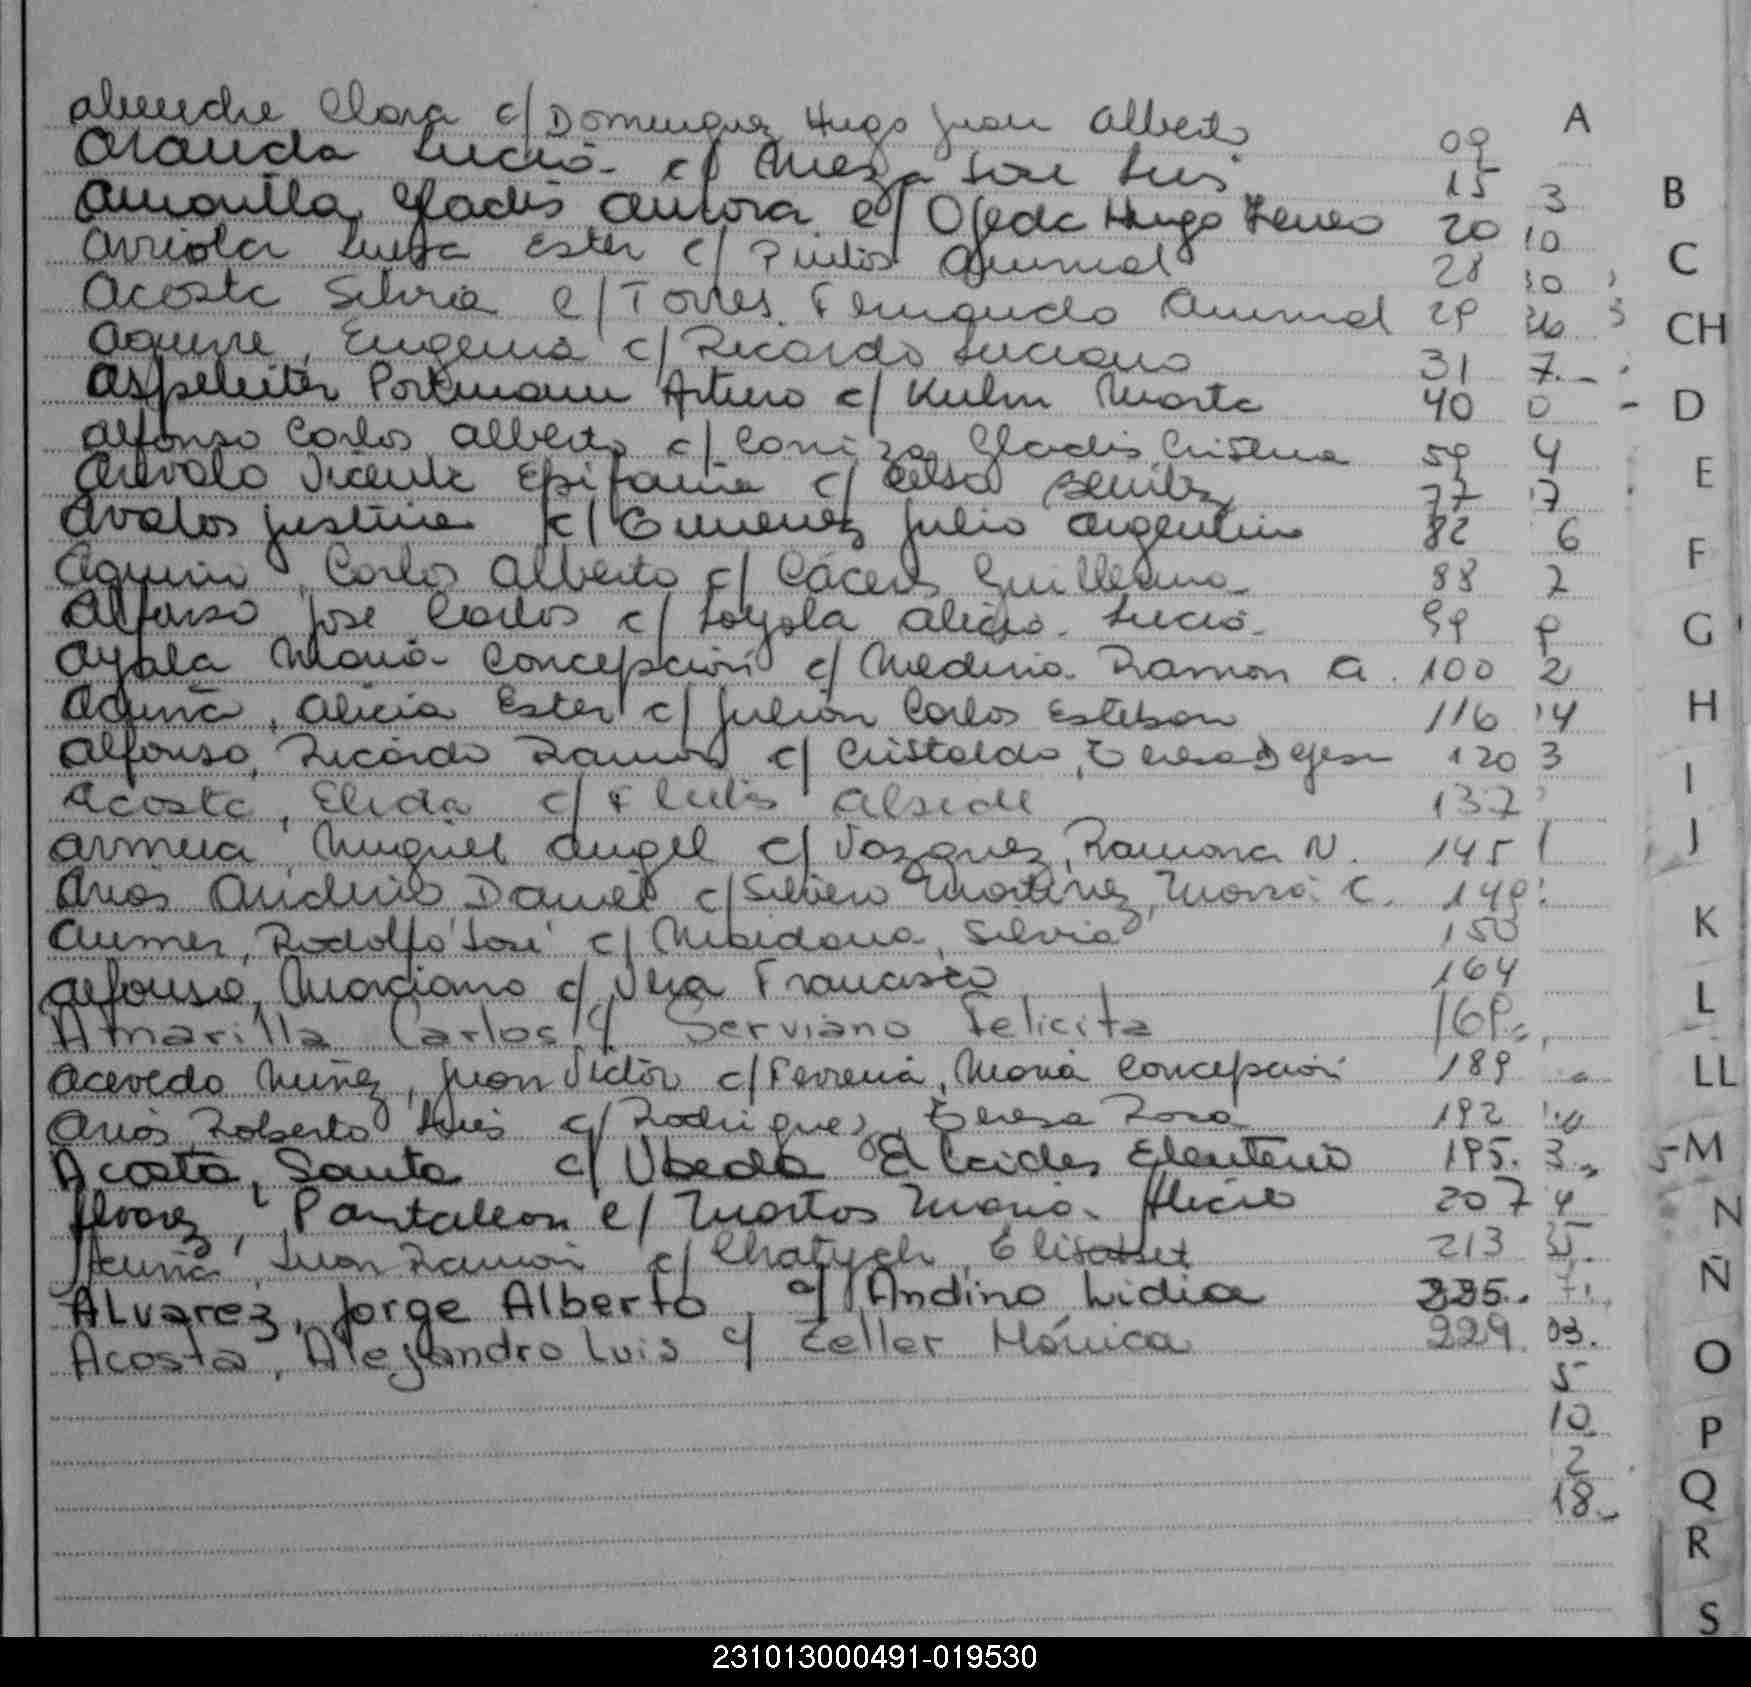 Clara c/ Dominguez Hugo Juan Alberto 09 A
Aranda Lucia c/ Meza Jose Luis 15 3 B
Amarilla Gladis Aurora c/ Ojeda Hugo 20 10
Arriola Luisa Ester c/ Anibal 28 30 C
Acosta Silvia c/ Torres Anibal 29 CH
Aguirre, Eugenia c/ Ricardo Luciano 31 7
Portmann Arturo c/ Kuhn Marta 40 0 D
Alfonso Carlos Alberto c/ Gladis Cristina 59 4
Arevalo Vicente Epifania c/ Celso Benitez 77 7 E
Avalos Justina c/ Gimenez Julio Argentino 82 6
Aquino, Carlos Alberto c/ Cáceres Guillermo 88 2 F
Alfonso Jose Carlos c/ Loyola Alicia Lucia 99 G
Ayala Maria Concepcion c/ Medina Ramon A. 100 2
Acuña, Alicia Ester c/ Julian Carlos Esteban 116 14 H
Alfonso, Ricardo Ramon c/ Cristaldo, Teresa D Jesus 120 3
Acosta, Elida c/ 137 I
Miguel Angel c/ Vazquez, Ramona N. 145 J
Arias Daniel c/ Silvero Martinez, Maria C. 149
Rodolfo José c/ Silvia 150 K
Alfonso, Marciano c/ Vera Francisco 164
Amarilla Carlos c/ Serviano Felicita 169 L
Acevedo Nuñez, Juan Victor c/ Ferreira, Maria Concepcion 189 LL
Arias Roberto Luis c/ Rodriguez, Teresa Rosa 192
Acosta, Santa c/ Ubeda Alcides Eleuterio 195. 3 M
Alvarez, Pantaleon c/ Martos Maria Alicia 207 4 N
Acuña, Juan Ramon c/ Chatych, Elisabet 213
Ñ
Alvarez, Jorge Alberto c/ Andino Lidia 225.
Acosta, Alejandro Luis c/ Zeller Mónica 229. 03. O
5
10 P
2
18 Q
R
S
231013000491-019530